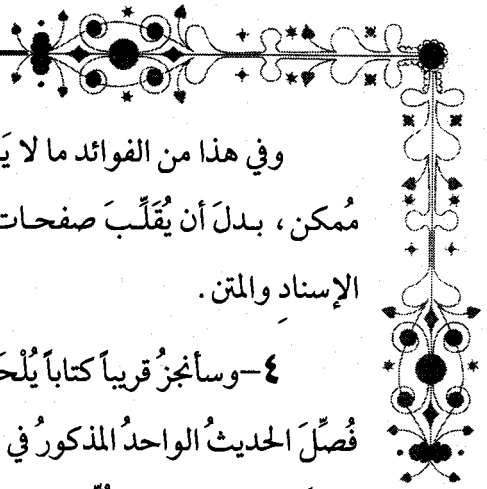 وفي هذا من الفوائد ما لا
مُمكن، بدلَ أن يُقَلِّبَ صفحات
الإسنادِ والمتن.
٤-وسأنجزُ قريباً كتاباً
فُصِّلَ الحديثُ الواحدُ المذكورُ في